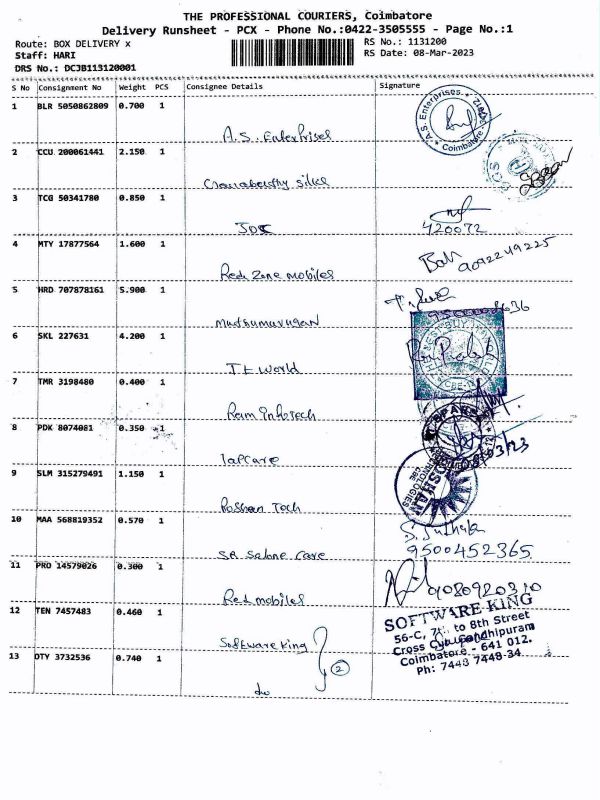 THE PROFESSIONAL COURIERS, Coimbatore
Delivery Runsheet - PCX - Phone No.:0422-3505555 - Page No.:1
Route: BOX DELIVERY x
RS No.: 1131200
Staff: HARI
RS Date: 08-Mar-2023
DRS No.: DCJB113120001
S No Consignment No Weight PCS Consignee Details Signature
1 BLR 5050862809 0.700 1
A.S. Enterprises
A.S. Enterprises
Coimbatore
2 CCU 200061441 2.150 1
silks
3 TCG 50341780 0.850 1
420072
4 MTY 17877564 1.600 1
Red Zone mobiles
9092249225
5 HRD 707878161 5.900 1
6 SKL 227631 4.200 1
IT World
7 TMR 3198480 0.400 1
Ram Infotech
8 PDK 8074081 0.350 1
lapcare
9 SLM 315279491 1.150 1
Roshan Tech
10 MAA 568819352 0.570 1
9500452365
11 PRO 14579026 0.300 1
Red mobiles
12 TEN 7457483 0.460 1
Software King
2
SOFTWARE KING
to 8th Street
Coimbatore - 641 012.
Ph: 7448 7448 34
13 DTY 3732536 0.740 1
do